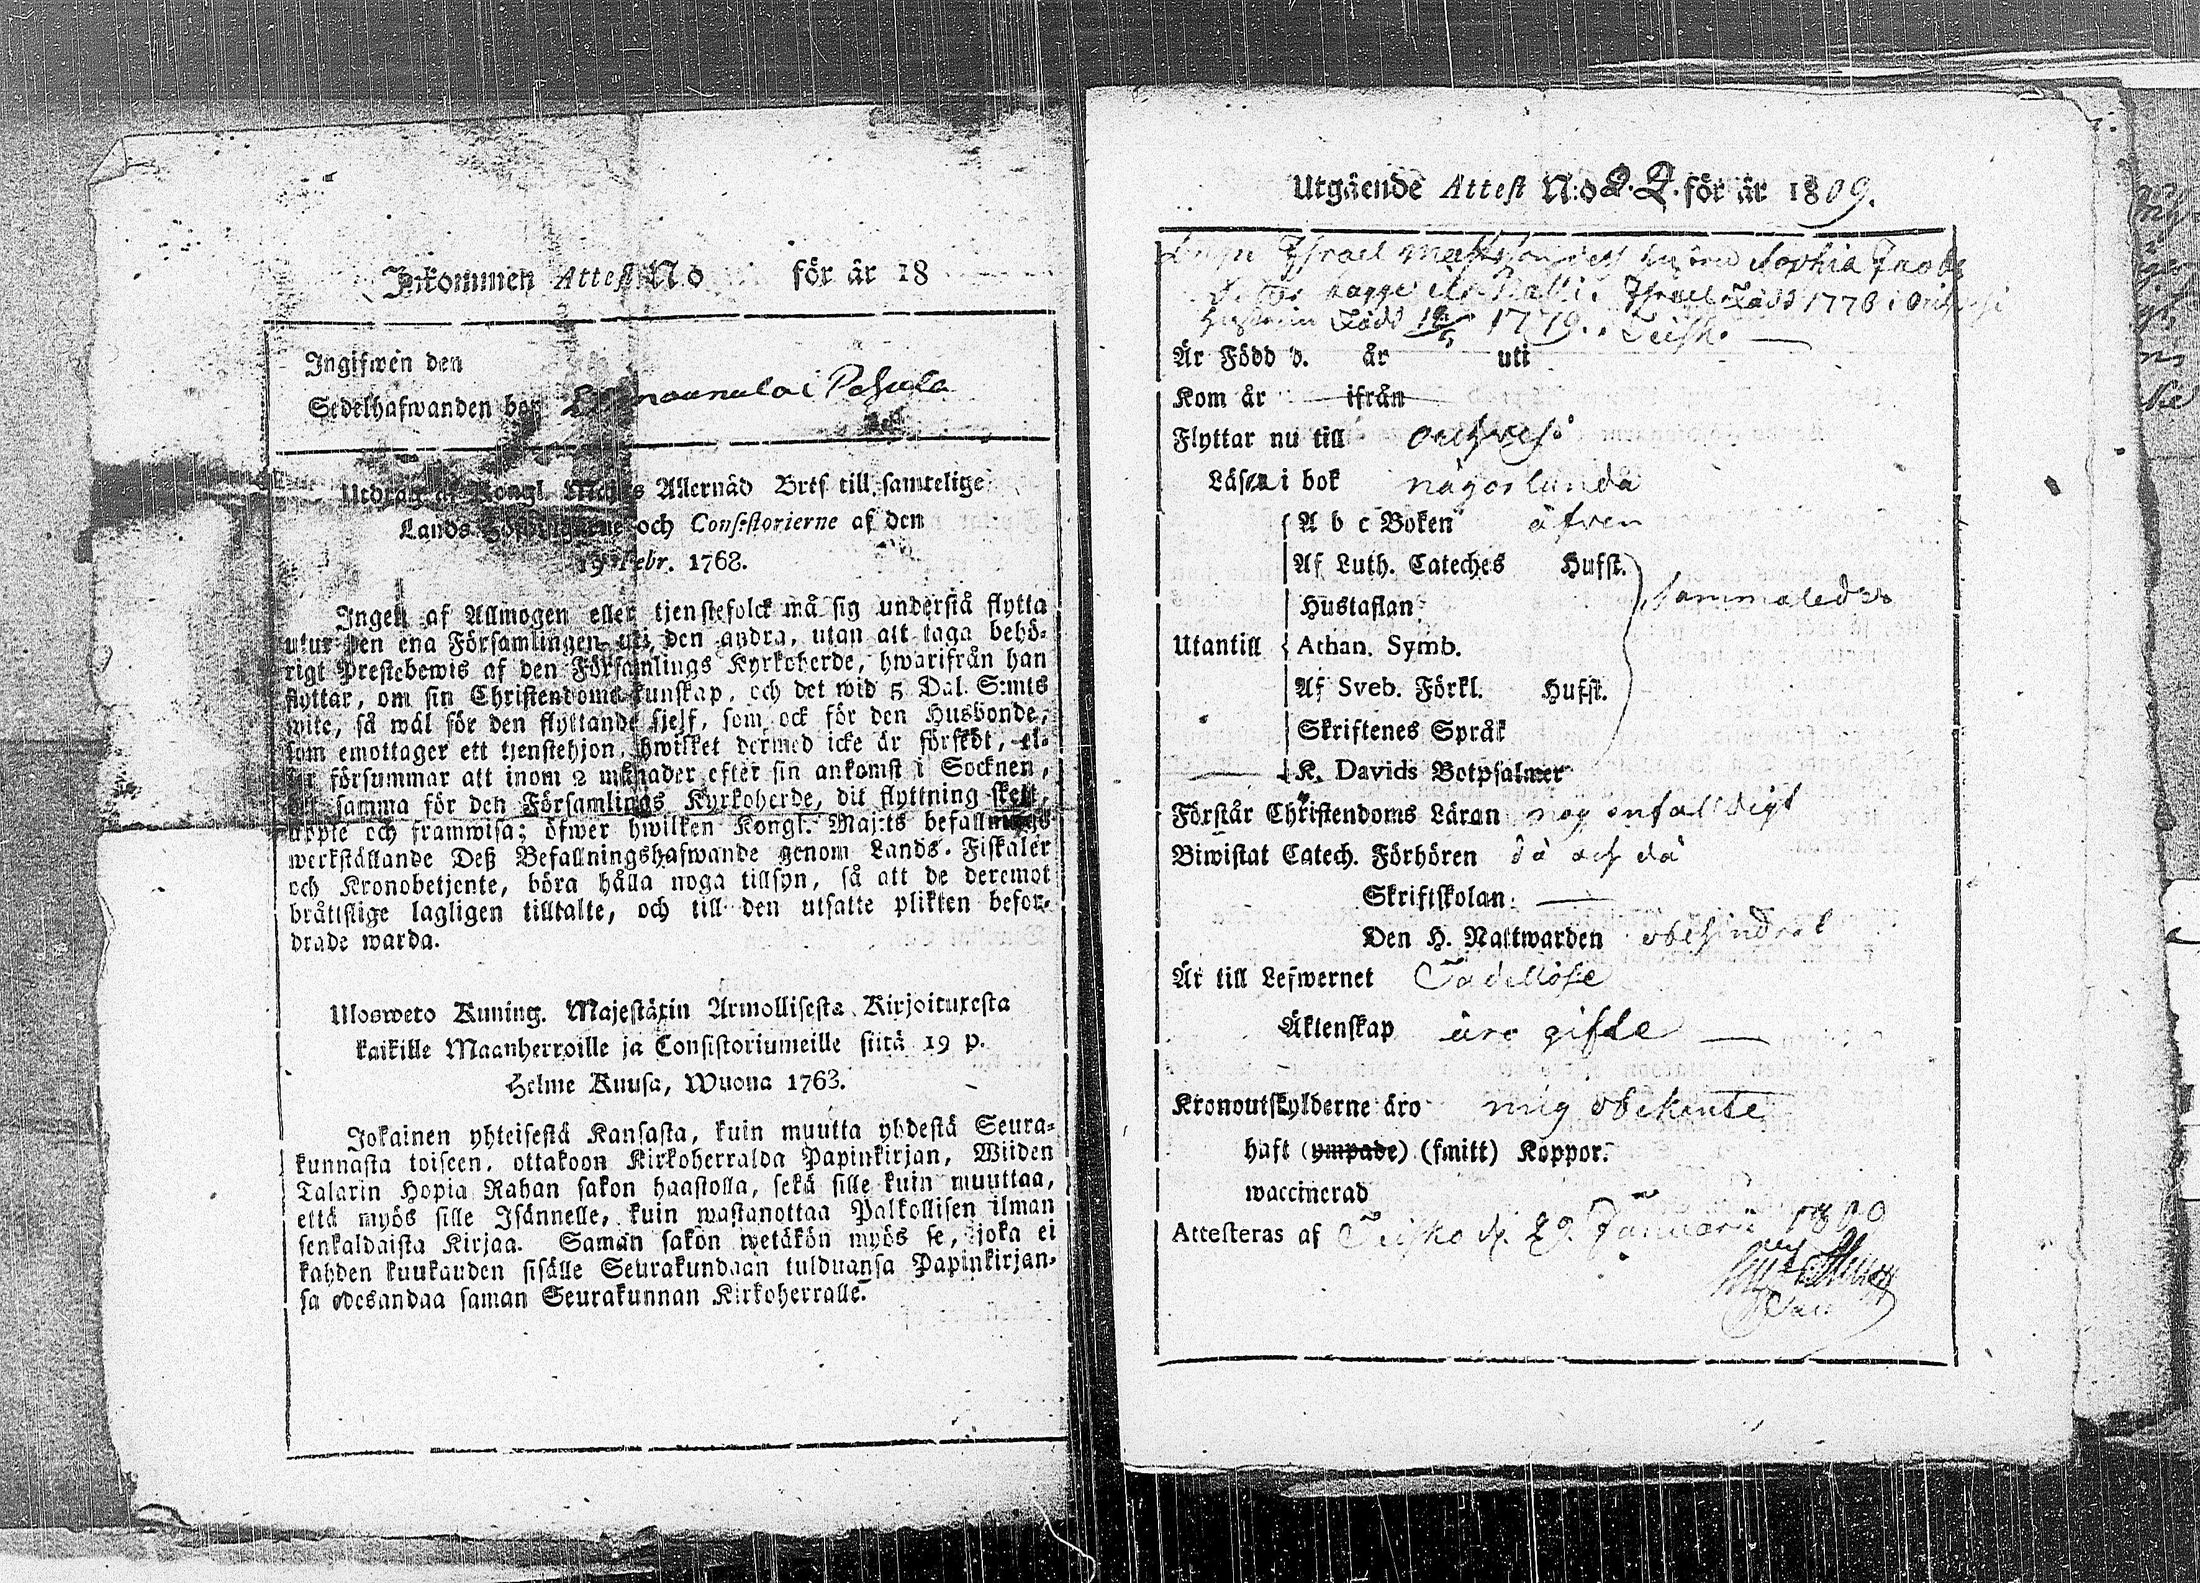 Inkommen Attest No för år 18
Ingifwen den
Sedelhafwanden bor i Pohjula
Utdrag af Kongl. Maj:ts Allernåd Bref till samtelige
Lands och Consistorierne af den
19 Febr. 1768.
Ingen af Allmogen eller tjenstefolck må sig understå flytta
utur den ena Församlingen uti den andra, utan att taga behö-
rigt Prestebewis af den Församlings Kyrkoherde, hwarifrån han
flyttar, om sin Christendoms kunskap, och det wid 5 Dal. S:mts
wite, så wäl för den flyttande sjelf, som ock för den Husbonde,
som emottager ett tjenstehjon, hwilket dermed icke är försedt, el-
ler försummar att inom 2 månader efter sin ankomst i Socknen,
samma för den Församlings Kyrkoherde, dit flyttning skett,
uppte och framwisa; öfwer hwilken Kongl. Maj:ts befallnings
werkställande Deß Befallningshafwande genom Lands-Fiskaler
och Kronobetjente, böra hålla noga tillsyn, så att de deremot
bråttslige lagligen tilltalte, och till den utsatte plikten befor-
drade warda.
Ulosweto Kuning. Majestätin Armollisesta Kirjoituxesta
kaikille Maanherroille ja Consistoriumeille siitä 19 p.
Helme Kuusa, Wuona 1763.
Jokainen yhteisestä Kansasta, kuin muutta yhdestä Seura-
kunnasta toiseen, ottakoon Kirkoherralda Papinkirjan, Wiiden
Talarin Hopia Rahan sakon haastolla, sekä sille kuin muuttaa,
että myös sille Isännelle, kuin wastanottaa Palkollisen ilman
senkaldaista Kirjaa. Saman sakon wetäkön myös se, joka ei
kahden kuukauden sisälle Seurakundaan tulduansa Papinkirjan-
sa edesandaa saman Seurakunnan Kirkoherralle.
Utgående Attest N:o 22. för år 1809.
Israel Mattsson Sophia Jacobs
Israel Född 1778 i
Hustrun Född 1779.
Är Född d. år uti
Kom år ifrån
Flyttar nu till Orihvesi
Läsa i bok någorlunda
A b c Boken äfven
Af Luth. Cateches Hufst.
Hustaflan sammaledes
Utantill Athan. Symb.
Af Sveb. Förkl. Hufst.
Skriftenes Språk
K. Davids Botpsalmer
Förstår Christendoms Läran nog enfaldigt
Biwistat Catech. Förhören då och då
Skriftskolan
Den H. Nattwarden obehindrat
Är till Lefwernet Tadellöse
Äktenskap äro gifte
Kronoutskylderne äro mig obekante
haft (ympade) (smitt) Koppor.
waccinerad
Attesteras af Teisko d. 29. Januarii